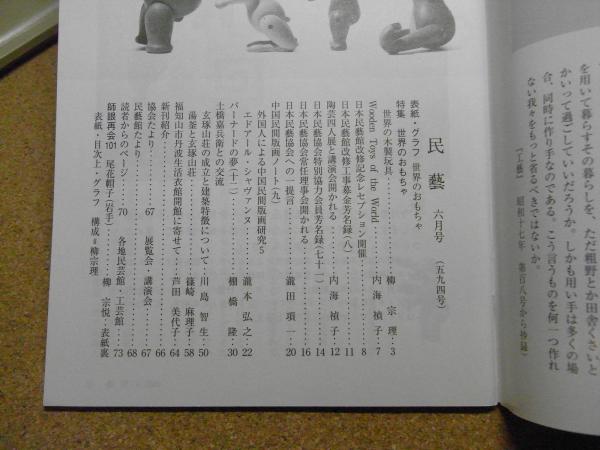 を用いて暮らすその暮らしを、ただ粗野とか田舎くさいと
かいって過ごしていいだろうか。しかも用い手は多くの場
合、同時に作り手なのである。こう言うものを何一つ作れ
ない我々をもっと省るべきではないか。
（『工藝』 昭和十七年 第百八号から抄録）
民藝 六月号 （五九四号）
表紙・グラフ 世界のおもちゃ
特集 世界のおもちゃ
世界の木製玩具……柳宗理…3
Wooden Toys of the World……内海禎子…7
日本民藝館改修記念レセプション開催……8
日本民藝館改修工事募金芳名録（八）……11
陶芸四人展と講演会開かれる……内海禎子…12
日本民藝協会特別協力会員芳名録（七十一）……14
日本民藝協会常任理事会開かれる……16
日本民藝協会への一提言……瀧田項一…20
中国民間版画ノート（九）
外国人による中国民間版画研究5
エドアール・シャヴァンヌ……瀧本弘之…22
バーナードの夢（十二）……棚橋隆…30
土橋嘉兵衛との交流
玄琢山荘の成立と建築特徴について……川島智生…50
湯釜と玄琢山荘……篠崎麻理子…58
福知山市丹波生活衣館開館に寄せて……芦田美代子…64
新刊紹介……66
協会たより……67 展覧会 講演会……67
民藝館たより……68
読者からのページ……70 各地民芸館・工芸館……73
師眼再会101 尾花帽子（岩手）……柳宗悦・表紙裏
表紙・目次上・グラフ 構成＝柳宗理